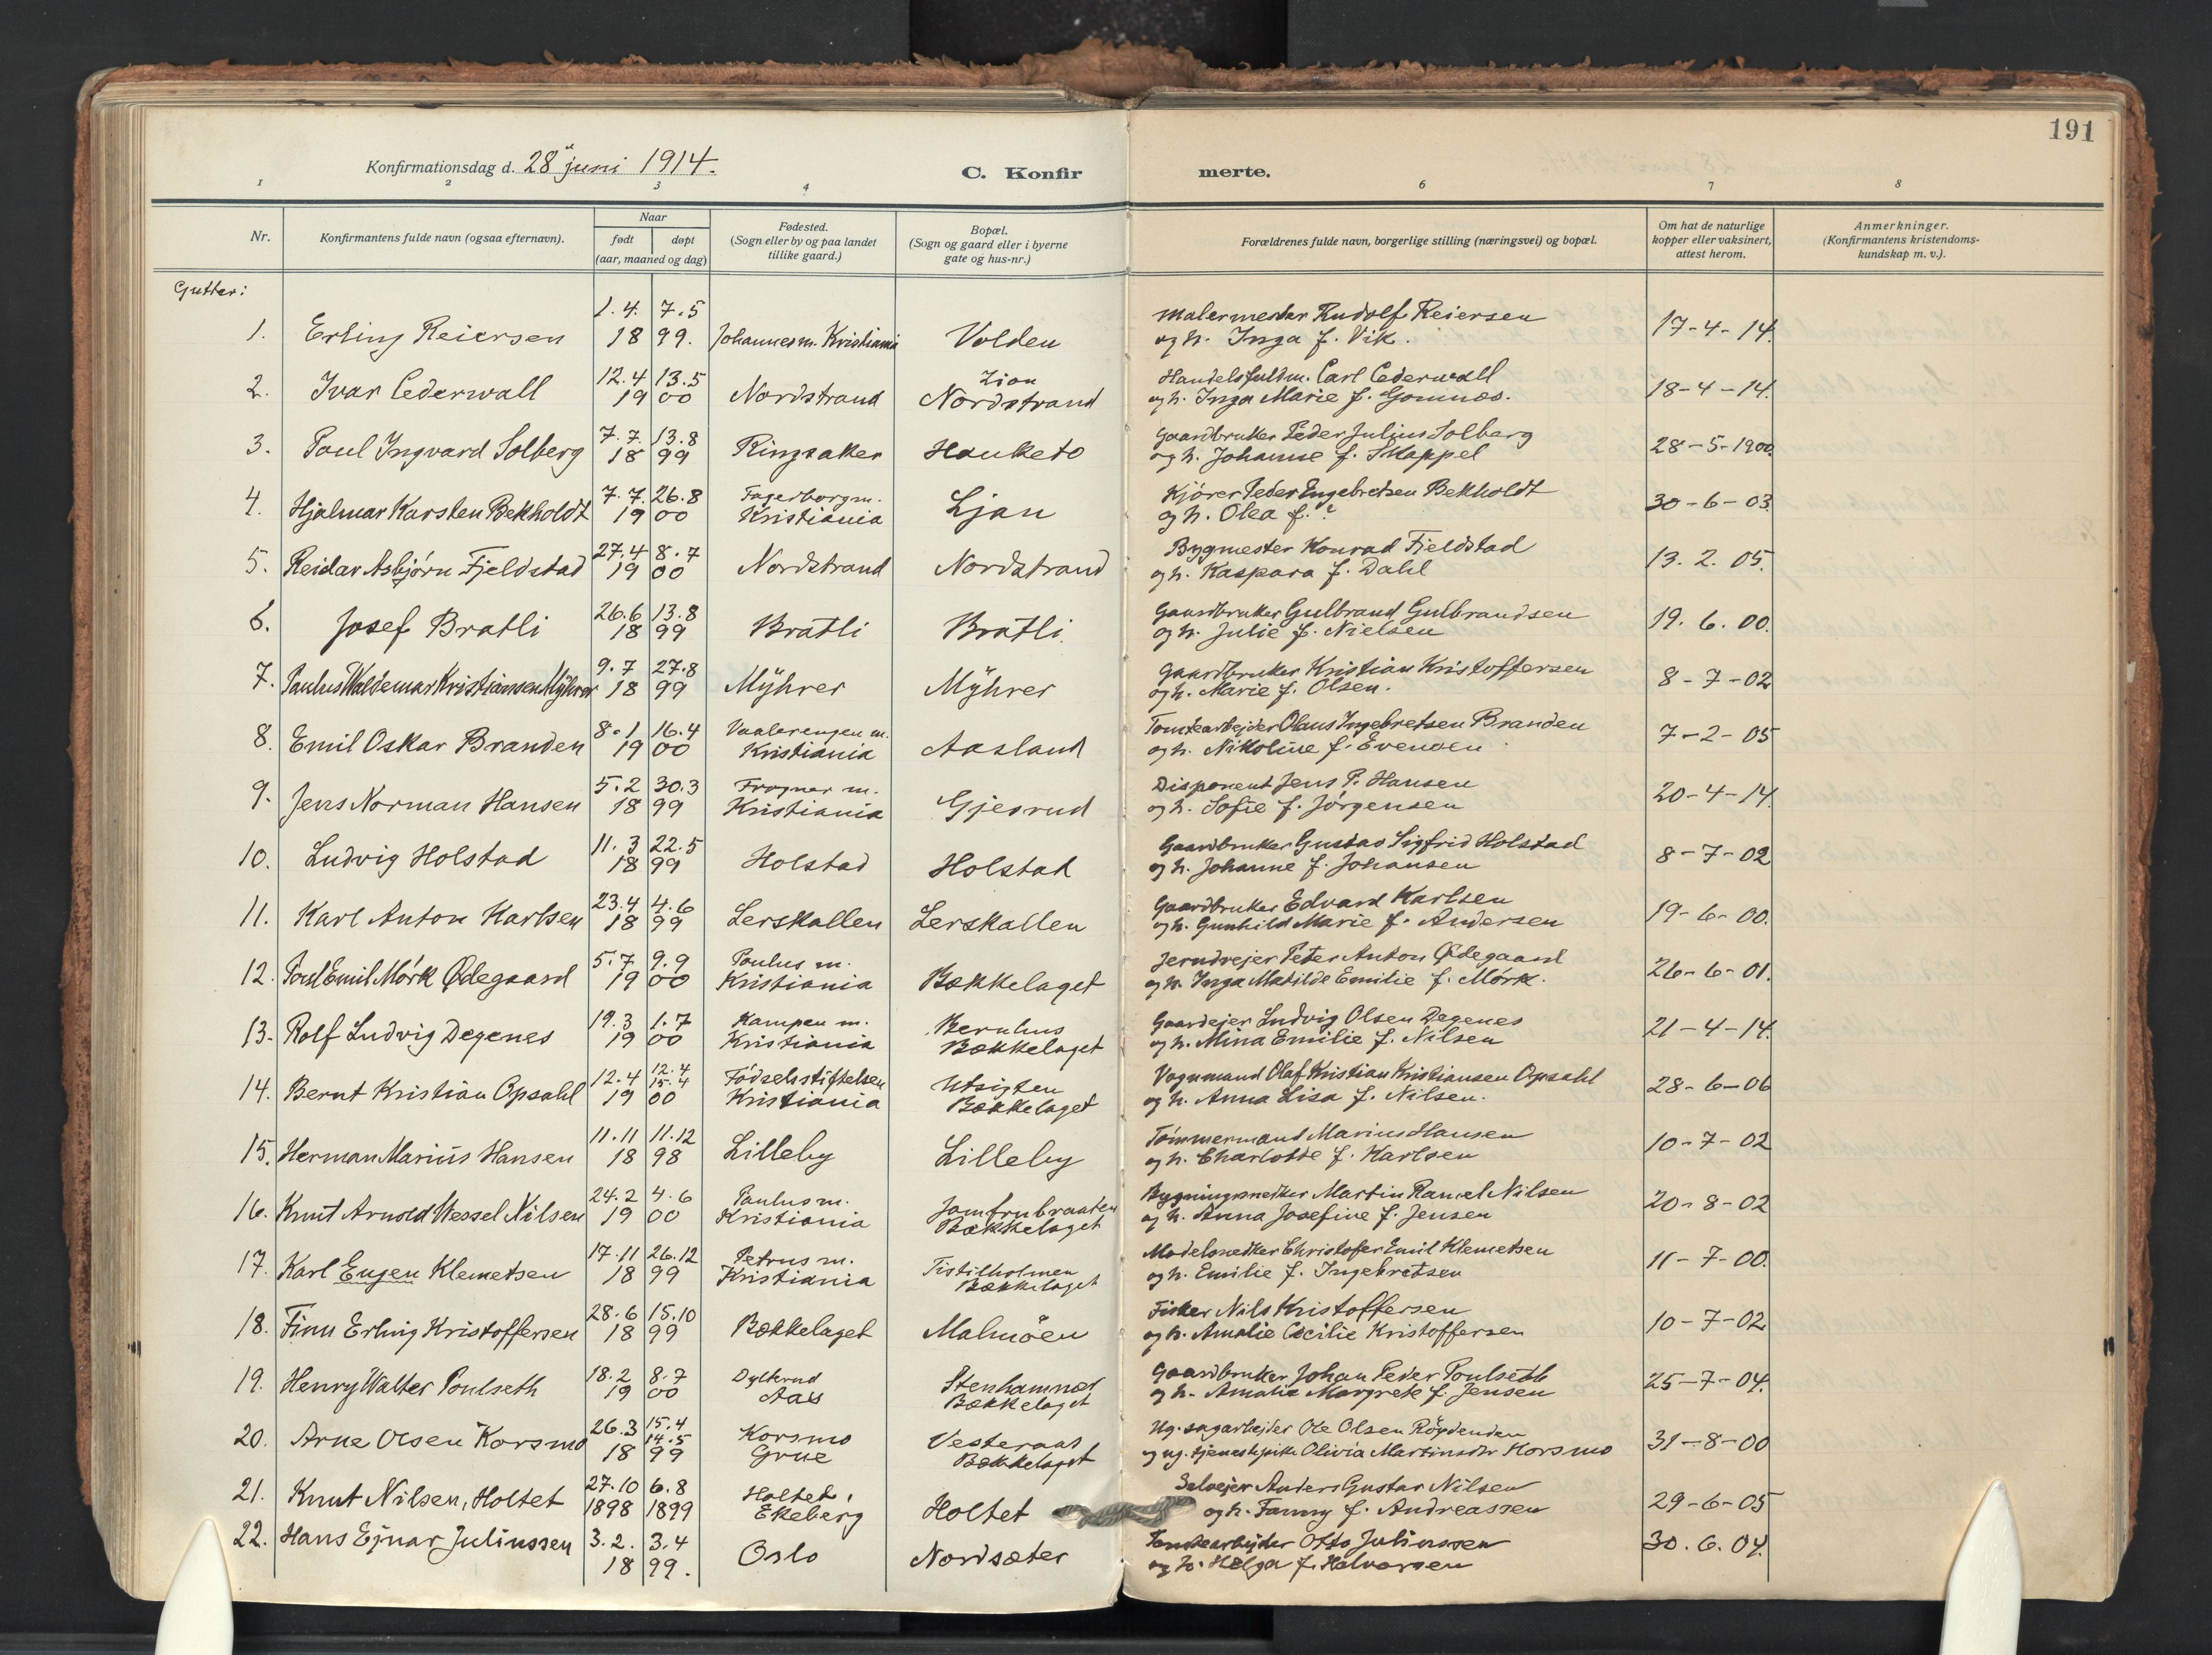 191
Konfirmationsdag d. 28 juni 1914.
C. Konfir merte.
1 2 3 4 6 7 8
Nr.
Konfirmantens fulde navn (ogsaa efternavn).
Naar
født døpt
(aar, maaned og dag)
Fødested.
(Sogn eller by og paa landet
tillike gaard.)
Bopæl.
(Sogn og gaard eller i byerne
gate og hus-nr.)
Forældrenes fulde navn, borgerlige stilling (næringsvei) og bopæl.
Om hat de naturlige
kopper eller vaksinert,
attest herom.
Anmerkninger.
(Konfirmantens kristendoms-
kundskap m. v.).
Gutter:
1.4. 7.5 Malermester Rudolf Reiersen
1. Erling Reiersen 18 99. Johannesm. Kristiania Volden og h. Inga f. Vik. 17-4-14.
12.4 13.5 Zion Handelsfuldm. Carl Cederwall
2. Ivar Cederwall 19 00 Nordstrand Nordstrand og h. Inga Marie f. Gomnæs. 18-4-14.
7.7. 13.8 Gaardbruker Peder Julius Solberg
3. Paul Ingvard Solberg 18 99 Ringsaker Hauketo og h. Johanne f. Skappel 28-5-1900.
7.7. 26.8 Fagerborgm. Kjører Peder Engebretsen Bekholdt
4. Hjalmar Karsten Bekholdt 19 00 Kristiania Ljan og h. Olea f. ? 30-6-03.
27.4 8.7 Bygmester Konrad Fjeldstad
5. Reidar Asbjørn Fjeldstad 19 00 Nordstrand Nordstrand og h. Kaspara f. Dahl 13.2.05.
26.6 13.8 Gaardbruker Gulbrand Gulbrandsen
6. Josef Bratli 18 99 Bratli Bratli og h. Julie f. Nielsen 19.6.00.
9.7 27.8 Gaardbruker Kristian Kristoffersen
7. Paulus Waldemar Kristiansen Myhrer 18 99 Myhrer Myhrer og h. Marie f. Olsen. 8-7-02
8.1 16.4 Vaalerengen m. Tomtearbejder Olaus Ingebretsen Branden
8. Emil Oskar Branden 19 00 Kristiania Aasland og h. Nikoline f. Evensen 7-2-05
5.2 30.3 Frogner m. Disponent Jens P. Hansen
9. Jens Norman Hansen 18 99 Kristiania Gjesrud og h. Sofie f. Jørgensen 20-4-14.
11.3 22.5 Gaardbruker Gustav Sigfrid Holstad
10. Ludvig Holstad 18 99 Holstad Holstad og h. Johanne f. Johansen 8-7-02
23.4 4.6 Gaardbruker Edvard Karlsen
11. Karl Anton Karlsen 18 99 Lerskallen Lerskallen og h. Gunhild Marie f. Andersen 19-6-00.
5.7 9.9 Paulus m. Jerndrejer Peter Anton Ødegaard
12. Poul Emil Mørk Ødegaard 19 00 Kristiania Bækkelaget og h. Inga Matilde Emilie f. Mørk. 26-6-01.
19.3 1.7 Kampen m. Bernhus Gaardejer Ludvig Olsen Degenes
13. Rolf Ludvig Degenes 19 00 Kristiania Bækkelaget og h. Mina Emilie f. Nilsen 21-4-14.
12.4 12.4 15.4 Fødselsstiftelsen Utsigten Vognmand Olaf Kristian Kristiansen Opsahl
14. Bernt Kristian Opsahl 19 00 Kristiania Bækkelaget og h. Anna Lisa f. Nilsen. 28-6-06
11.11 11.12 Tømmermand Marius Hansen
15. Herman Marius Hansen 18 98 Lilleby Lilleby og h. Charlotte f. Karlsen 10-7-02
24.2 4.6 Paulus m. Jomfrubraaten Bygningssnedker Martin Nilsen
16. Knut Arnold Wessel Nilsen 19 00 Kristiania Bækkelaget og h. Anna Josefine f. Jensen 20-8-02
17.11 26.12 Petrus m. Tistilholmen Modelsnedker Christofer Emil Klemetsen
17. Karl Eugen Klemetsen 18 99 Kristiania Bækkelaget og h. Emilie f. Ingebretsen 11-7-00.
28.6 15.10 Fisker Nils Kristoffersen
18. Finn Erling Kristoffersen 18 99 Bækkelaget Malmøen og h. Amalie Cecilie Kristoffersen 10-7-02
18.2 8.7 Stenhamnes Gaardbruker Johan Peder Poulseth
19. Henry Walter Poulseth 19 00 Aas Bækkelaget og h. Amalie Margrete f. Jensen 25-7-04.
26.3 15.4 14.5 Korsmo Vesteraas Ug. sagarbejder Ole Olsen Røgdenden
20. Arne Olsen Korsmo 18 99 Grue Bækkelaget og ug. tjenestepike Olivia Martinsdtr Korsmo 31-8-00
27.10 6.8 Holtet, Selvejer Anders Gustav Nilsen
21. Knut Nilsen, Holtet 1898 1899 Ekeberg Holtet og h. Fanny f. Andreassen 29-6-05
22. Hans Ejnar Juliussen 3.2. 3.4 Tomtearbejder Otto Juliussen 30.6.04.
18 99. Oslo Nordsæter og h. Helga f. Halvorsen